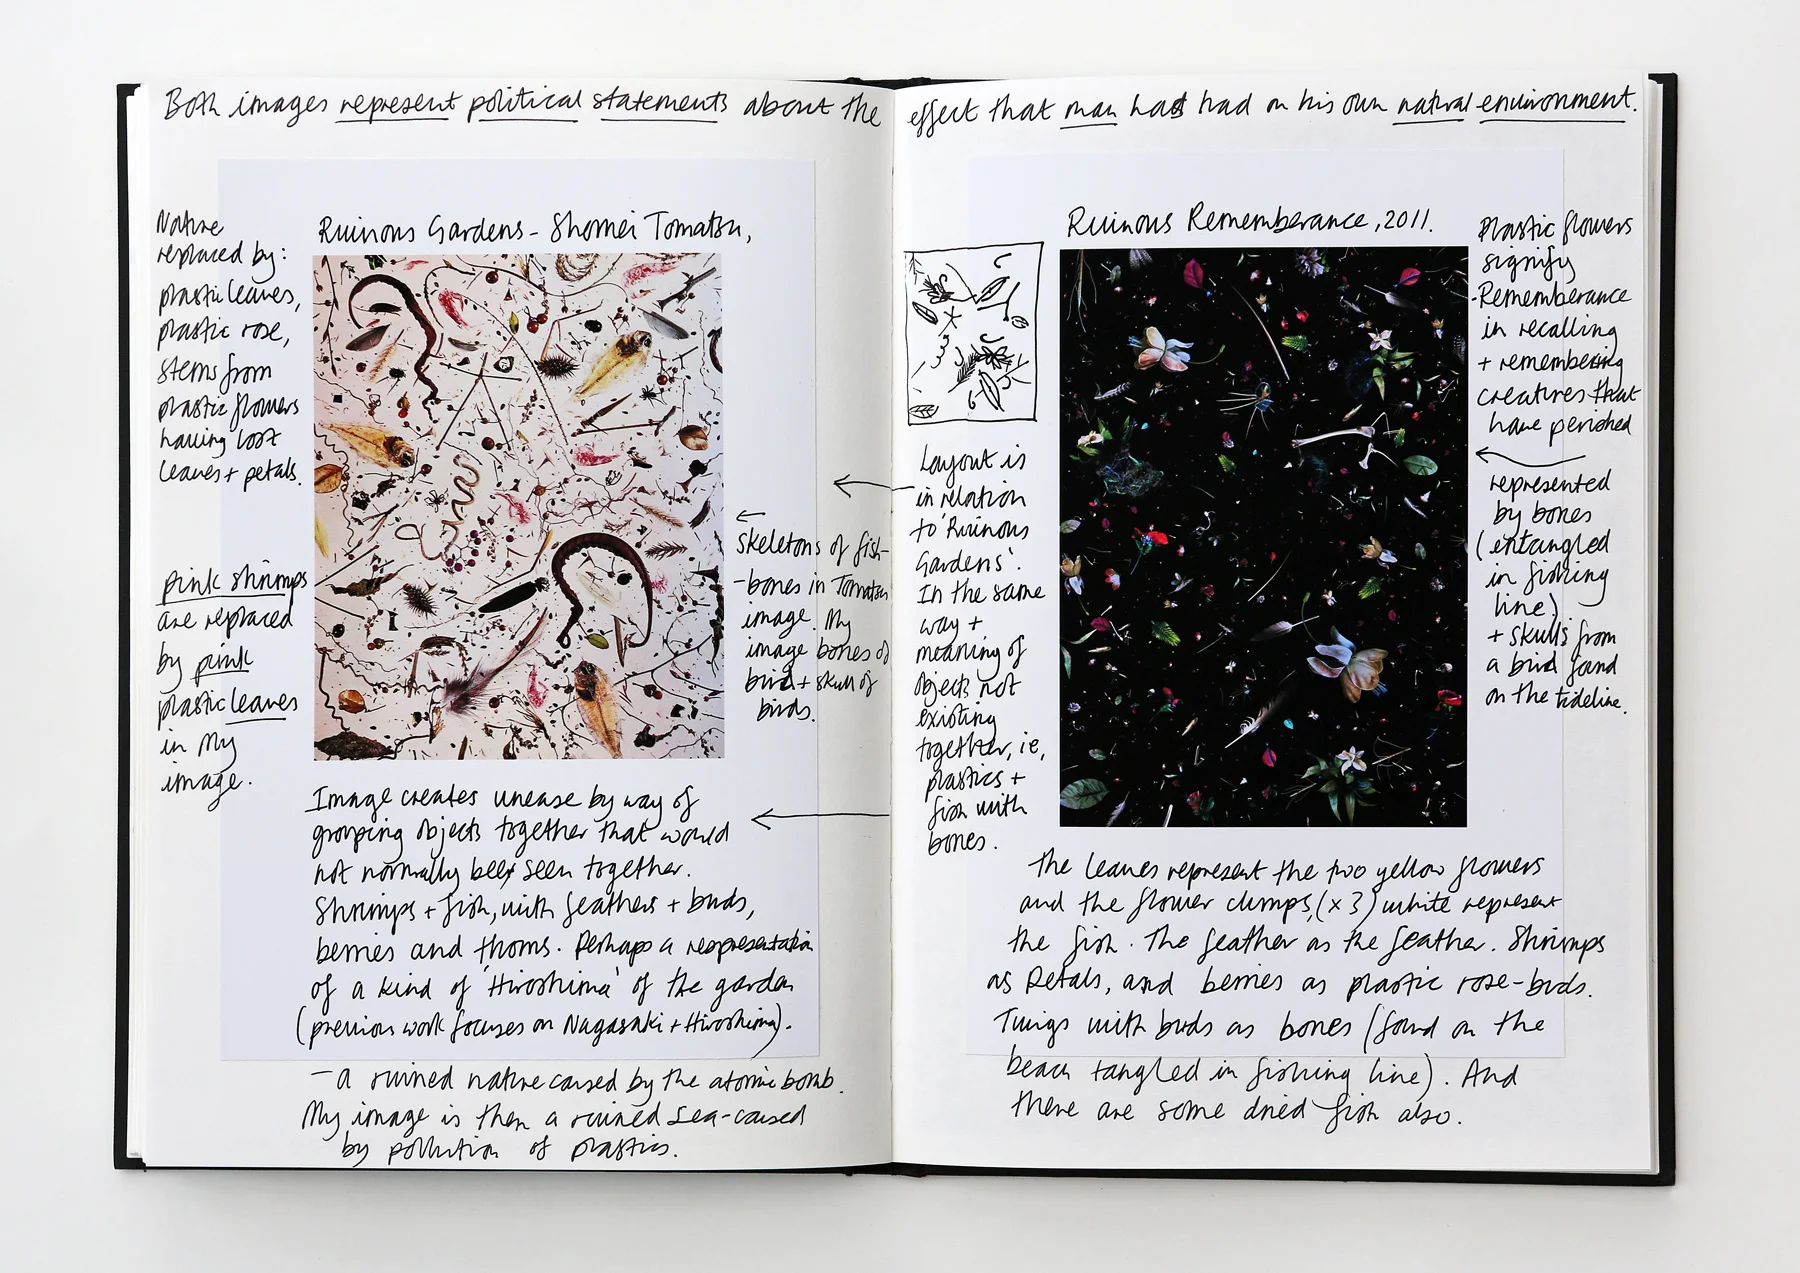 Both images represent political statements about the effect that man had had on his own natural environment.
Nature
replaced by:
plastic leaves,
plastic rose,
stems from
plastic flowers
having lost
leaves + petals.
pink shrimps
are replaced
by pink
plastic leaves
in my
image.
Ruinous Gardens - Shomei Tomatsu,
skeletons of fish-
-bones in Tomatsu
image. My
image bones of
bird + skull of
birds.
Image creates unease by way of
grouping objects together that would
not normally be seen together.
Shrimps + fish, with feathers + buds,
berries and thorns. Perhaps a representation
of a kind of 'Hiroshima' of the garden
(previous work focuses on Nagasaki + Hiroshima).
- a ruined nature caused by the atomic bomb.
My image is then a ruined sea-caused
by pollution of plastics.
Layout is
in relation
to 'Ruinous
Gardens'.
In the same
way +
meaning of
objects not
existing
together, ie,
plastics +
fish with
bones.
Ruinous Rememberance, 2011.
Plastic flowers
signify
-Rememberance
in recalling
+ remembering
creatures that
have perished
represented
by bones
(entangled
in fishing
line)
+ skulls from
a bird found
on the tideline.
the leaves represent the two yellow flowers
and the flower clumps, (x 3) white represent
the fish. The feather as the feather. Shrimps
as Petals, and berries as plastic rose-buds.
Twigs with buds as bones (found on the
beach tangled in fishing line). And
there are some dried fish also.